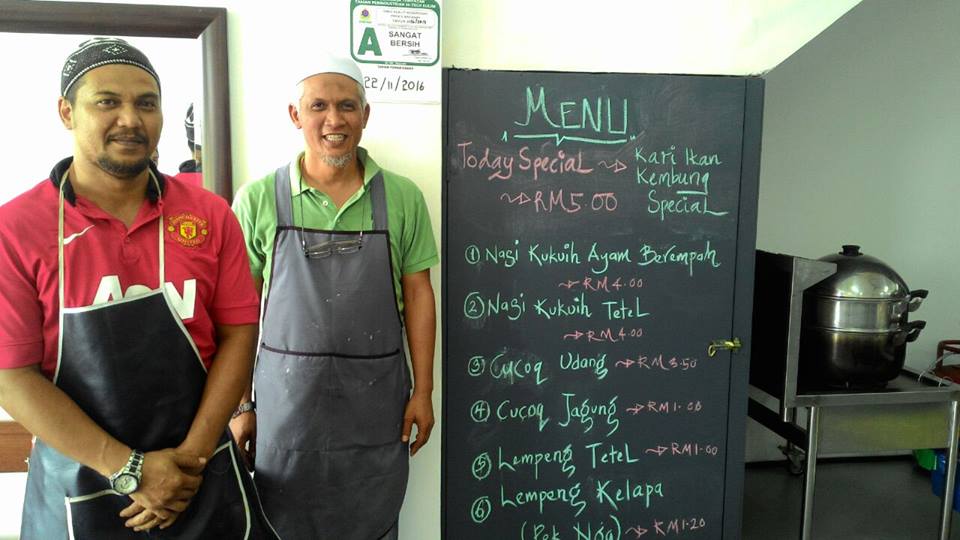 TAMAN PERINDUSTRIAN HI-TECH KULIM
A
SANGAT
BERSIH
22/11/2016
MANCHESTER
UNITED
AON
MENU
Today Special
Kari Ikan
Kembung
Special
RM5.00
① Nasi Kukuih Ayam Berempah
RM 4.00
② Nasi Kukuih Tetel
RM 4.00
③ Cucoq Udang RM 3.50
④ Cucoq Jagung RM 1.00
⑤ Lempeng Tetel RM 1.00
⑥ Lempeng Kelapa
(Pok Nga) RM 1.20